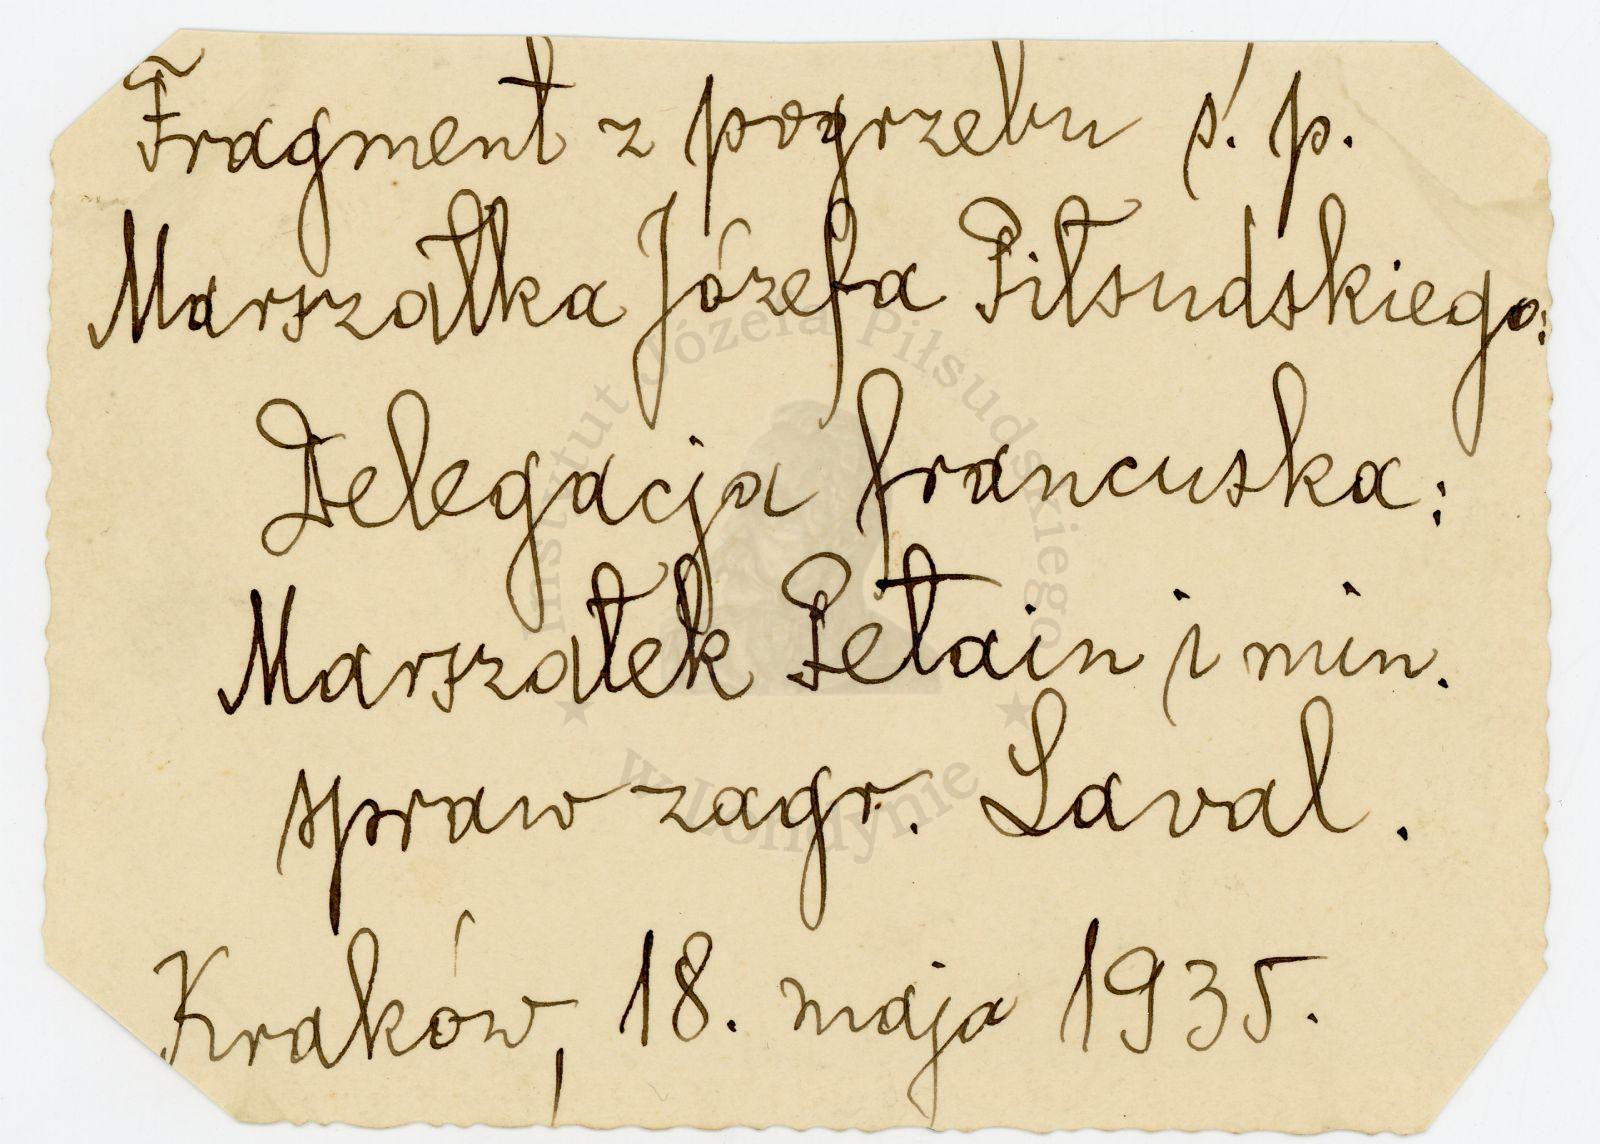 Fragment z pogrzebu ś. p.
Marszałka Józefa Piłsudskiego:
Delegacja francuska:
Marszałek Petain i min.
spraw zagr. Laval.
Kraków, 18. maja 1935.
Instytut Józefa Piłsudskiego
w Londynie